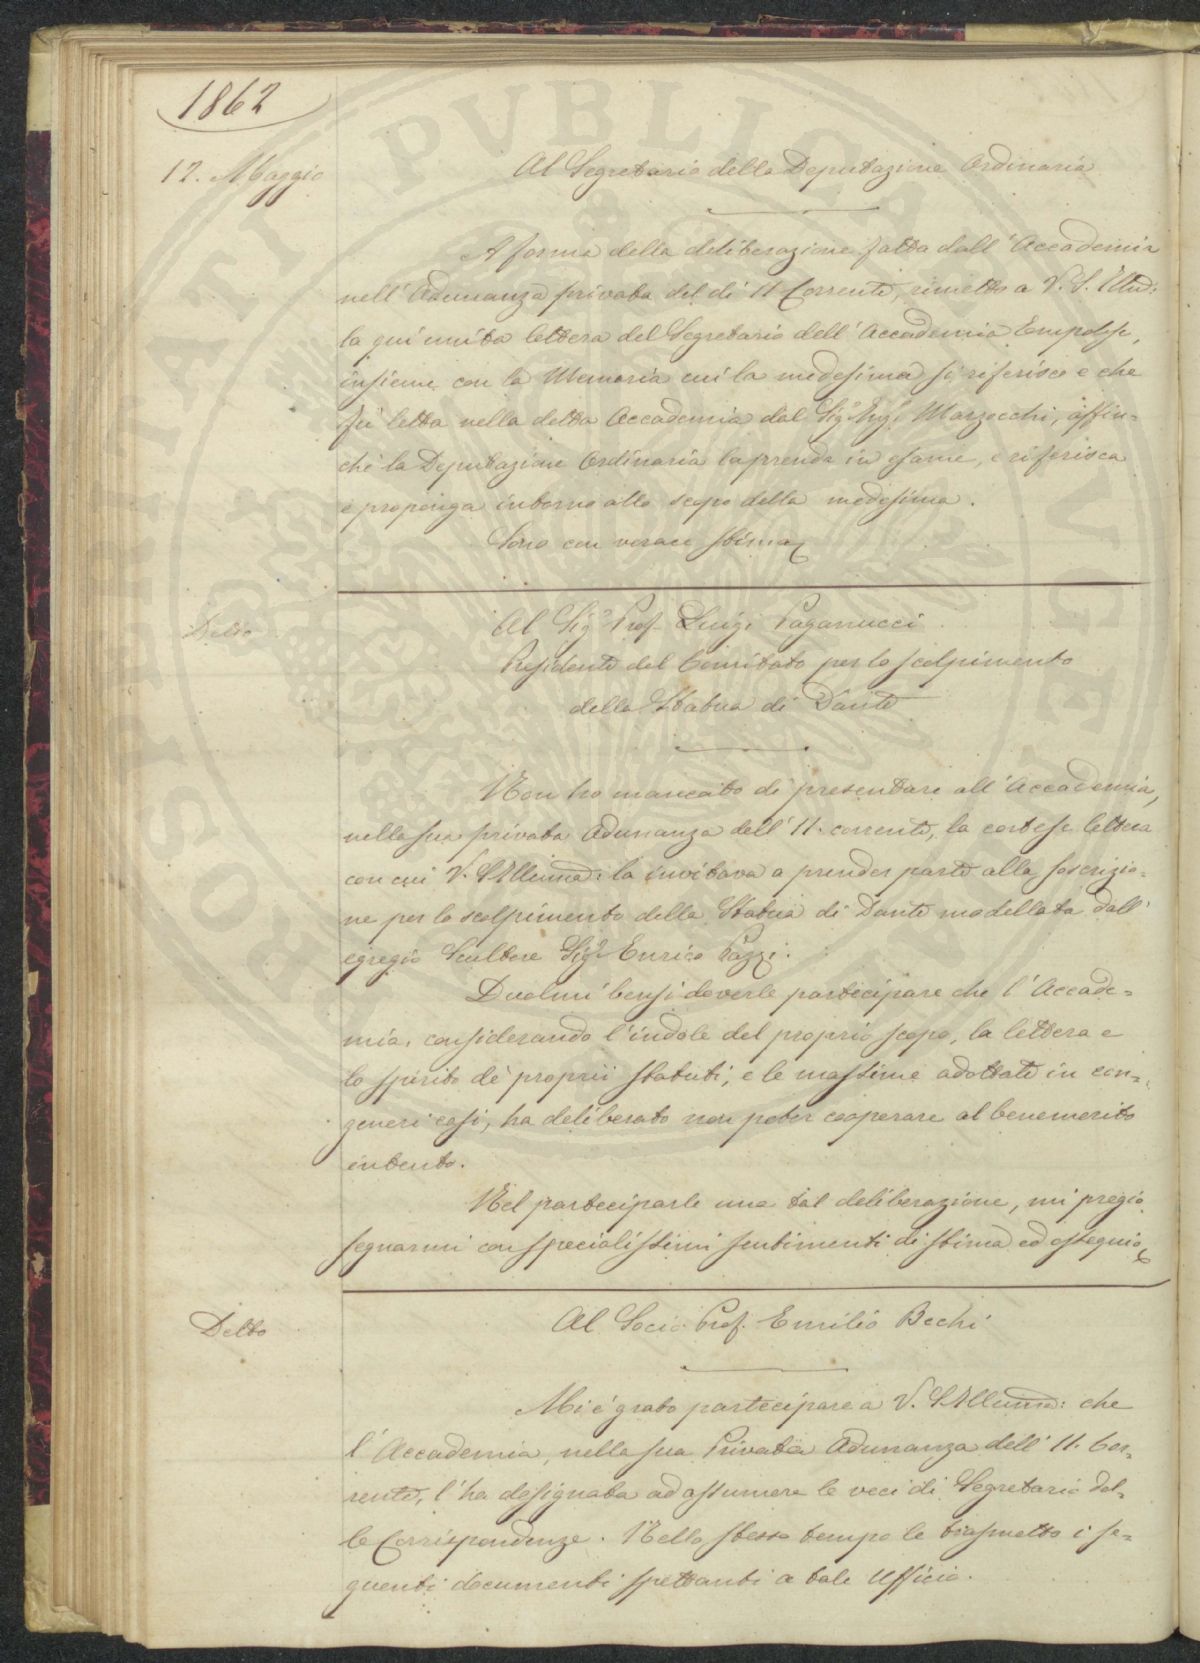 1862
12. Maggio
Al Segretario della Deputazione Ordinaria
A forma della deliberazione fatta dall'Accademia
nell'Adunanza privata del dì 11 Corrente, rimetto a V. S. Illma:
la qui unita lettera del Segretario dell'Accademia Empolese,
insieme con la Memoria cui la medesima si riferisce e che
fù letta nella detta Accademia dal Sigr Ingr Marzocchi, affin=
chè la Deputazione Ordinaria la prenda in esame, e riferisca
e proponga intorno allo scopo della medesima.
Sono con verace stima
Detto
Al Sigr Prof. Luigi Paganucci
Presidente del Comitato per lo scolpimento
della Statua di Dante
Non ho mancato di presentare all'Accademia,
nella sua privata Adunanza dell'11. corrente, la cortese lettera
con cui V. S. Illuma: la invitava a prender parte alla soscrizio=
ne per lo scolpimento della Statua di Dante modellata dall'
egregio Scultore Sigr Enrico Pazzi.
Duolmi bensì doverle partecipare che l'Accade=
mia, considerando l'indole del proprio scopo, la lettera e
lo spirito de' proprii statuti, e le massime adottate in con=
generi casi, ha deliberato non poter cooperare al benemerito
intento.
Nel parteciparle una tal deliberazione, mi pregio
segnarmi con specialissimi sentimenti di stima ed ossequio
Detto
Al Socio Prof. Emilio Bechi
Mi è grato partecipare a V. S. Illuma: che
l'Accademia, nella sua Privata Adunanza dell'11. Cor=
rente, l'ha designata ad assumere le veci di Segretario del=
le Corrispondenze. Nello stesso tempo le trasmetto i se=
guenti documenti spettanti a tale Ufficio.